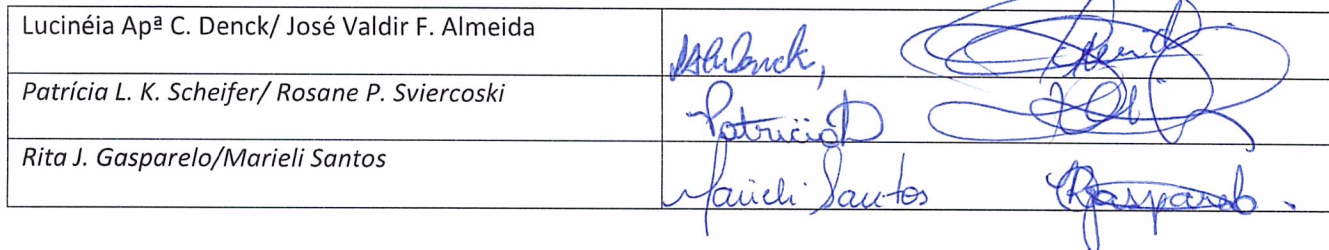 Lucinéia Apª C. Denck/ José Valdir F. Almeida
Patrícia L. K. Scheifer/ Rosane P. Sviercoski
Patricia
Rita J. Gasparelo/Marieli Santos
Marieli Santos RGasparelo